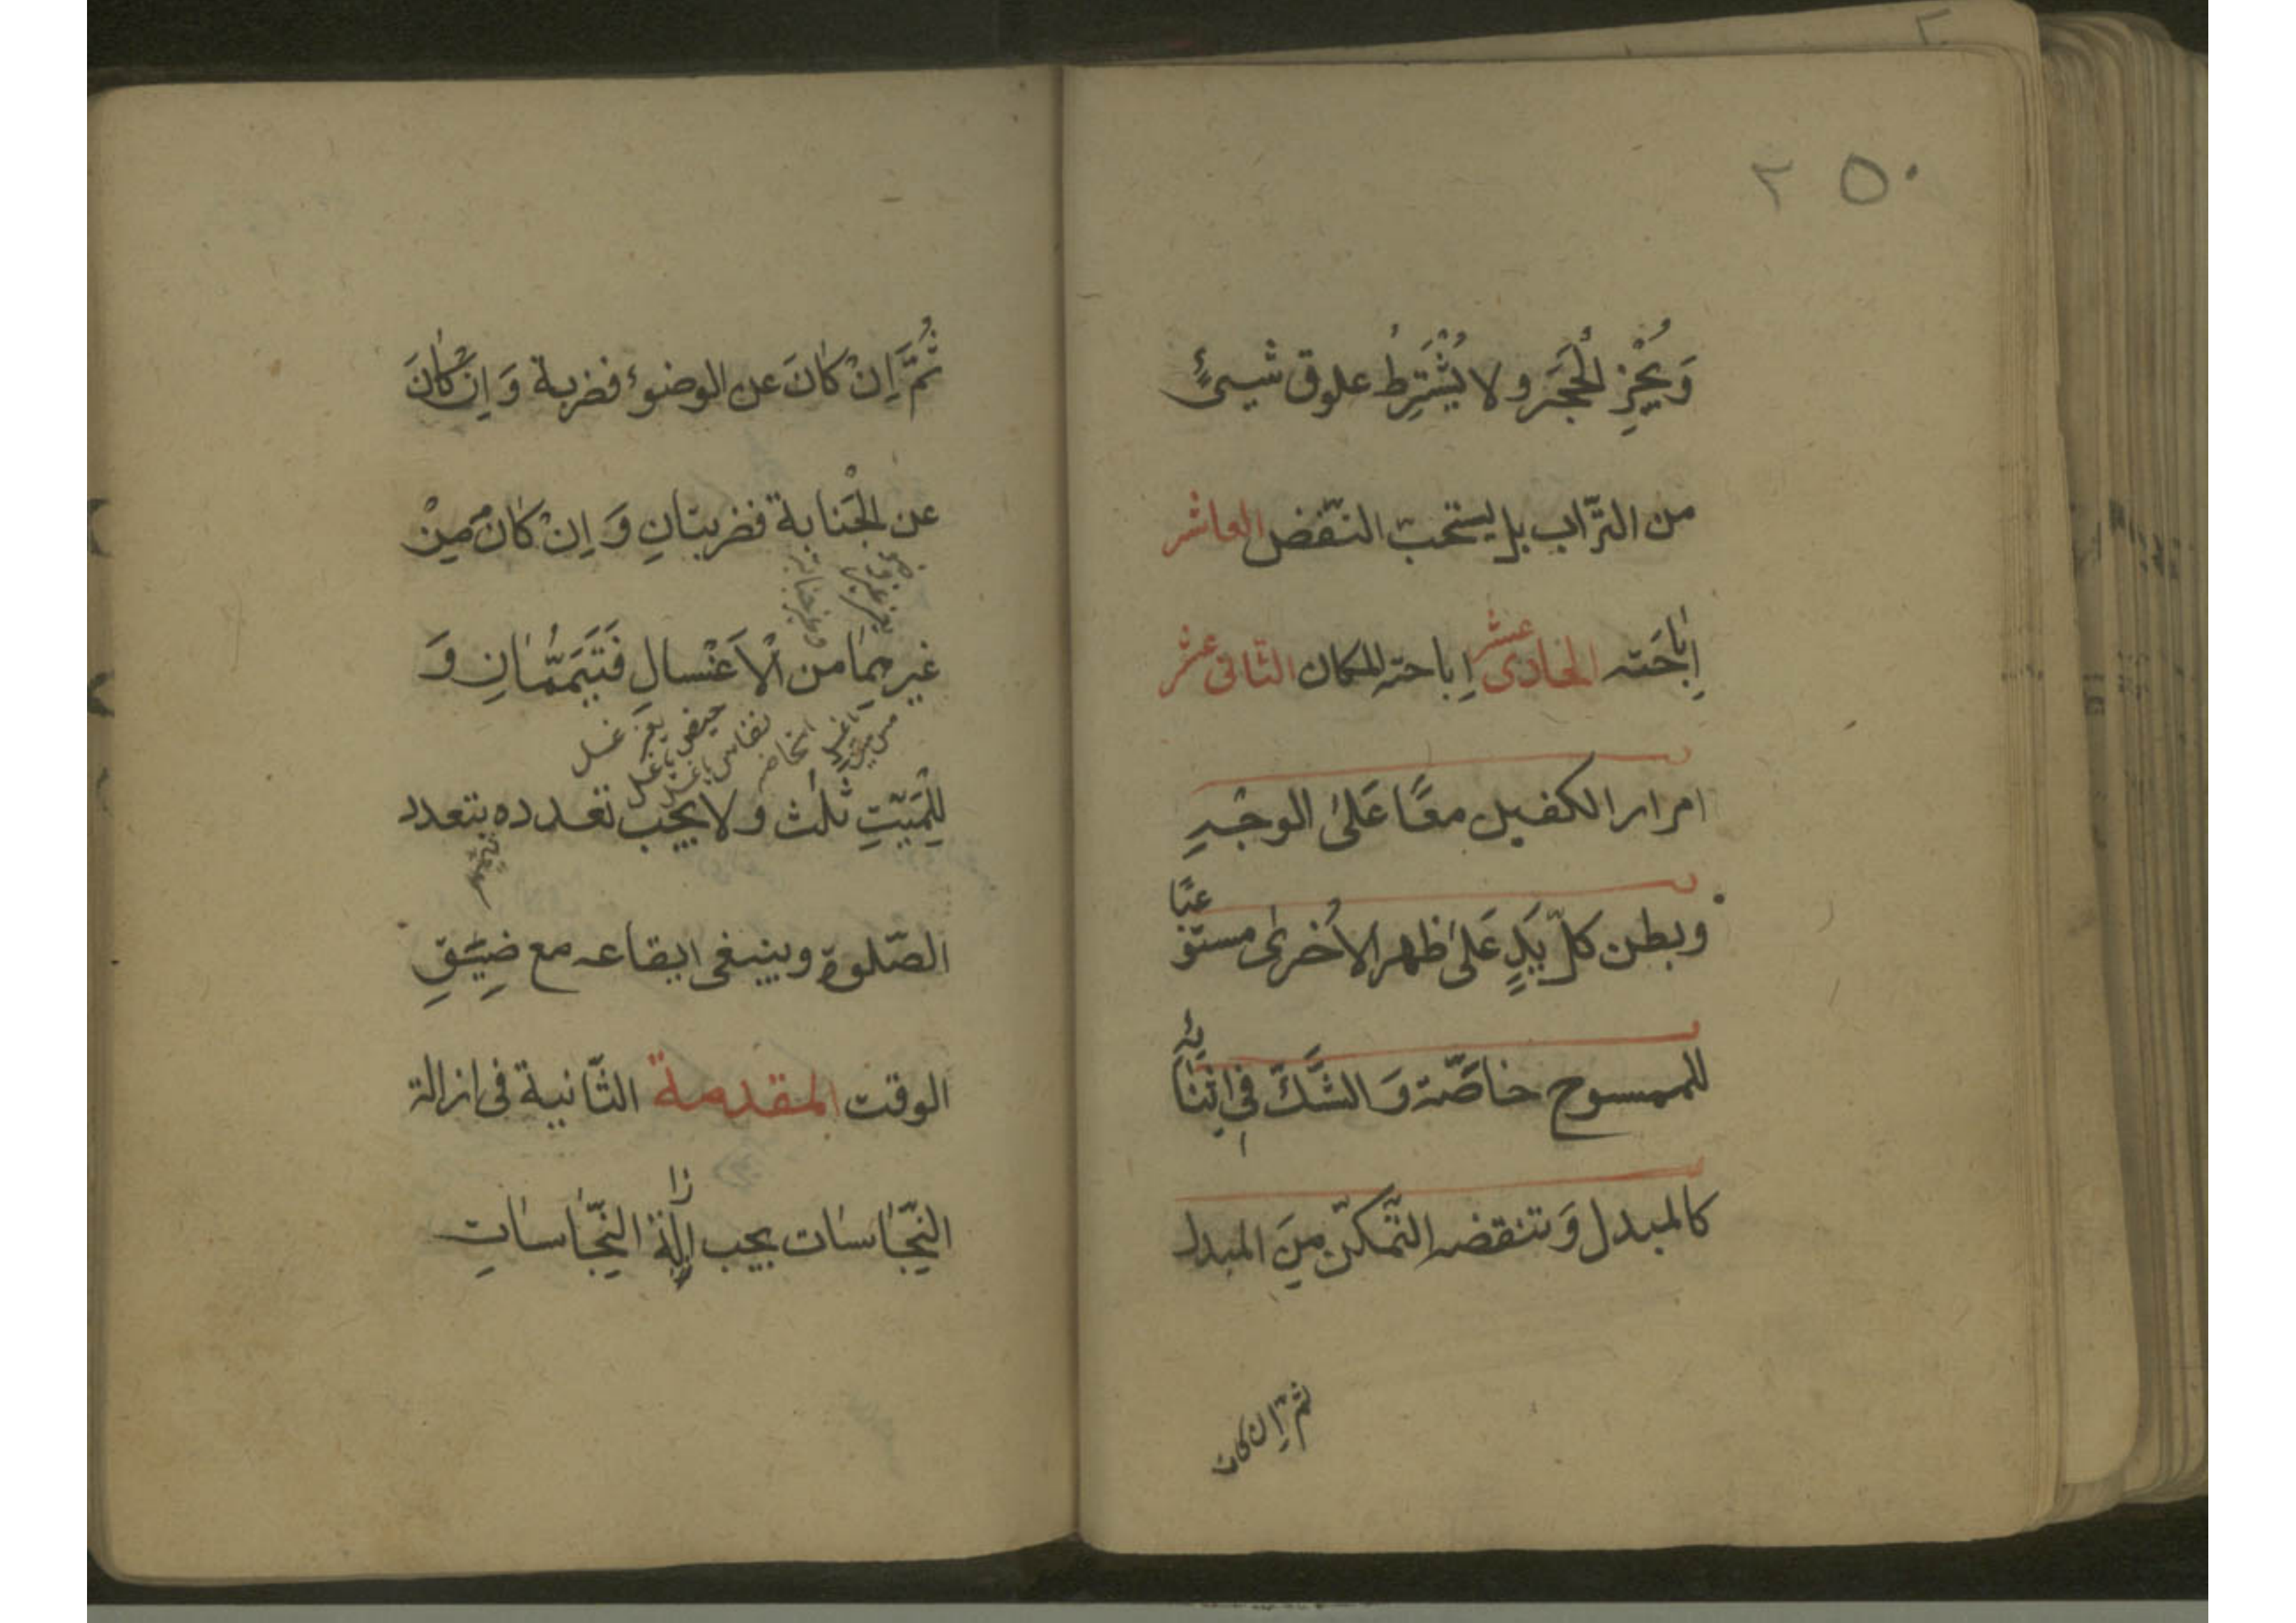 ٢٥٠
وَيُجْزِ الْحَجَرُ ولا يُشْتَرِطُ علوق شيىءٍ
من التّراب بل يستحبّ النّفض العاشر
اِبٰاحَته الحادى عشر اباحته المكان الثانى عشر
امرار الكفين معًا عَلىٰ الوجْهِ
وبطن كلّ يَدٍ عَلىٰ ظهر الأُخرىٰ مستوْعبًا
للممسوح خاصّة وَ الشَّكّ فى اثنٰائه
كالمبدل وَ تنقضه التّمكّن مِنَ المبدل
ثم اِن كان
ثُمَّ اِنْ كٰانَ عن الوضوء فضربة وَ اِنْ كٰانَ
عن الْجَنابة فضربتانِ وَ اِنْ كانَ مِنْ
غيرهِمٰا من الْاَغْسالِ فَتَيَمَّمٰانِ وَ
حيض بغير غسل
لِلْمَيّتِ ثلٰث ولا يجب تعدده بتعدد
الصّلوة وينبغى ايقاعه مع ضِيَقِ
الوقت المقدمة الثّانية فى ازالة
النّجٰاسٰات يجب ازالة النّجٰاسٰاتِ